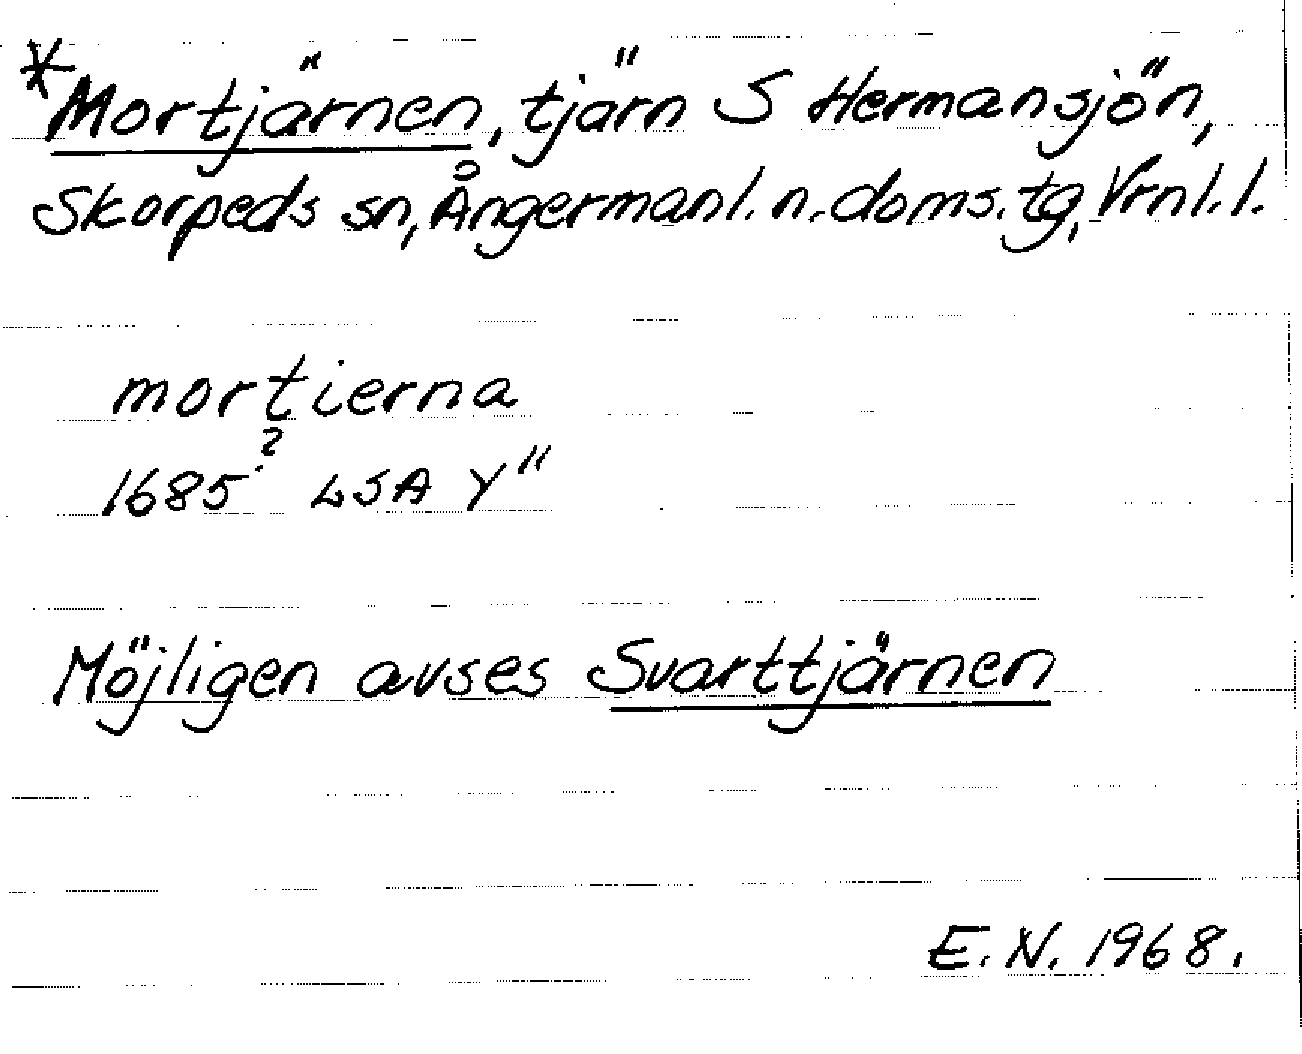 *Mortjärnen, tjärn S Hermansjön,
Skorpeds sn, Ångermanl. n. doms. tg, Vrnl. l.
mortierna
1685? LSA Y"
Möjligen avses Svarttjärnen
E. N. 1968.